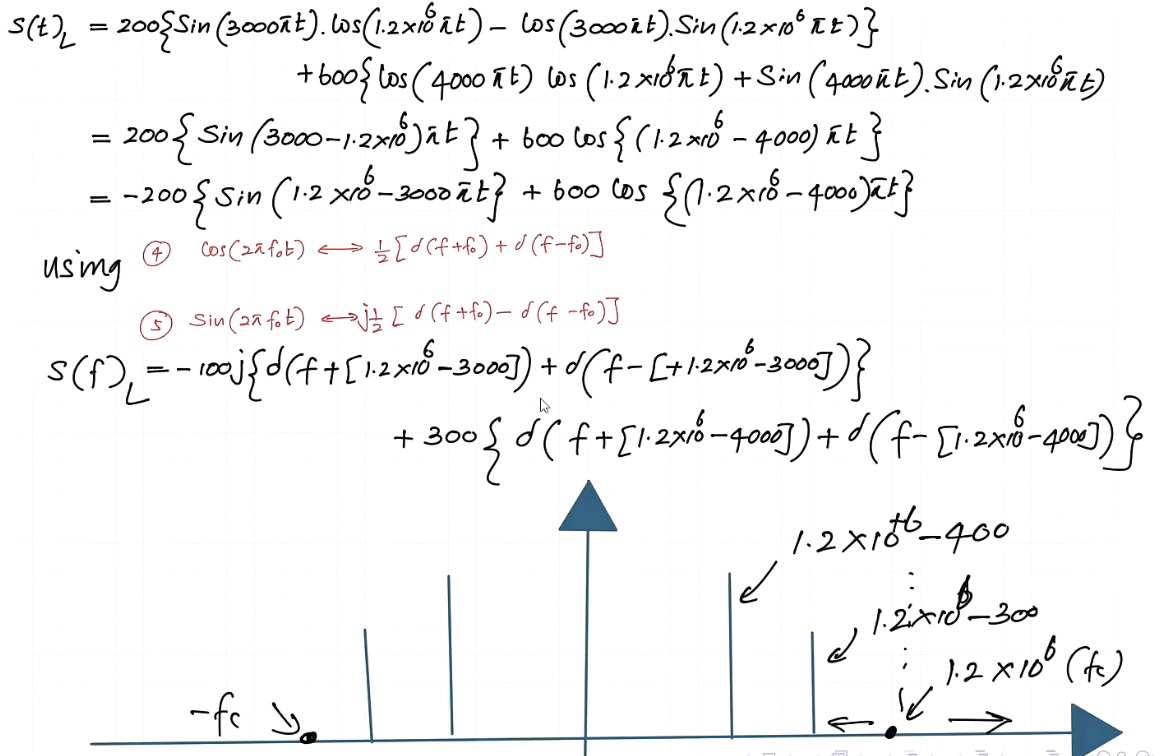 S(t)_L = 200{Sin(3000π̄t).Cos(1.2×10⁶π̄t) − Cos(3000π̄t).Sin(1.2×10⁶π̄t)}
+600{Cos(4000π̄t) Cos(1.2×10⁶π̄t) + Sin(4000π̄t).Sin(1.2×10⁶π̄t)
= 200{Sin(3000−1.2×10⁶)π̄t} + 600 Cos{(1.2×10⁶−4000)π̄t}
= −200{Sin(1.2×10⁶−3000π̄t} + 600 Cos{(1.2×10⁶−4000)π̄t}
using
④ Cos(2πf₀t) ⟷ ½[d(f+f₀) + d(f−f₀)]
⑤ Sin(2πf₀t) ⟷ j½[d(f+f₀) − d(f−f₀)]
S(f)_L = −100j{d(f+[1.2×10⁶−3000]) + d(f−[+1.2×10⁶−3000])}
+ 300{d(f+[1.2×10⁶−4000]) + d(f−[1.2×10⁶−4000])}
1.2×10⁺⁶−400
1.2×10⁶−300
1.2×10⁶(fc)
−fc